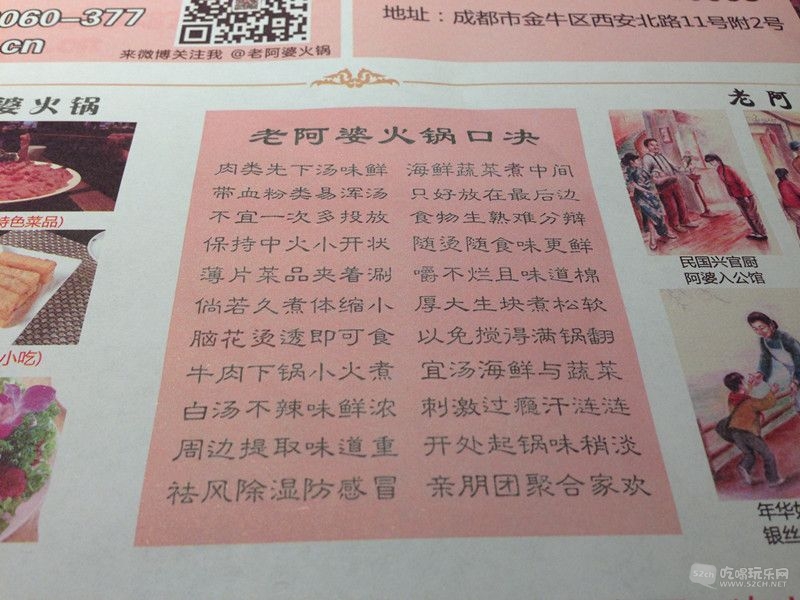 060-377
.cn
来微博关注我 @老阿婆火锅
地址：成都市金牛区西安北路11号附2号
婆火锅
老阿
特色菜品)
小吃)
老阿婆火锅口决
肉类先下汤味鲜 海鲜蔬菜煮中间
带血粉类易浑汤 只好放在最后边
不宜一次多投放 食物生熟难分辩
保持中火小开状 随烫随食味更鲜
薄片菜品夹着涮 嚼不烂且味道棉
倘若久煮体缩小 厚大生块煮松软
脑花烫透即可食 以免搅得满锅翻
牛肉下锅小火煮 宜汤海鲜与蔬菜
白汤不辣味鲜浓 刺激过瘾汗涟涟
周边提取味道重 开处起锅味稍淡
祛风除湿防感冒 亲朋团聚合家欢
民国兴官厨
阿婆入公馆
年华如
银丝
吃喝玩乐网
WWW.52CH.NET